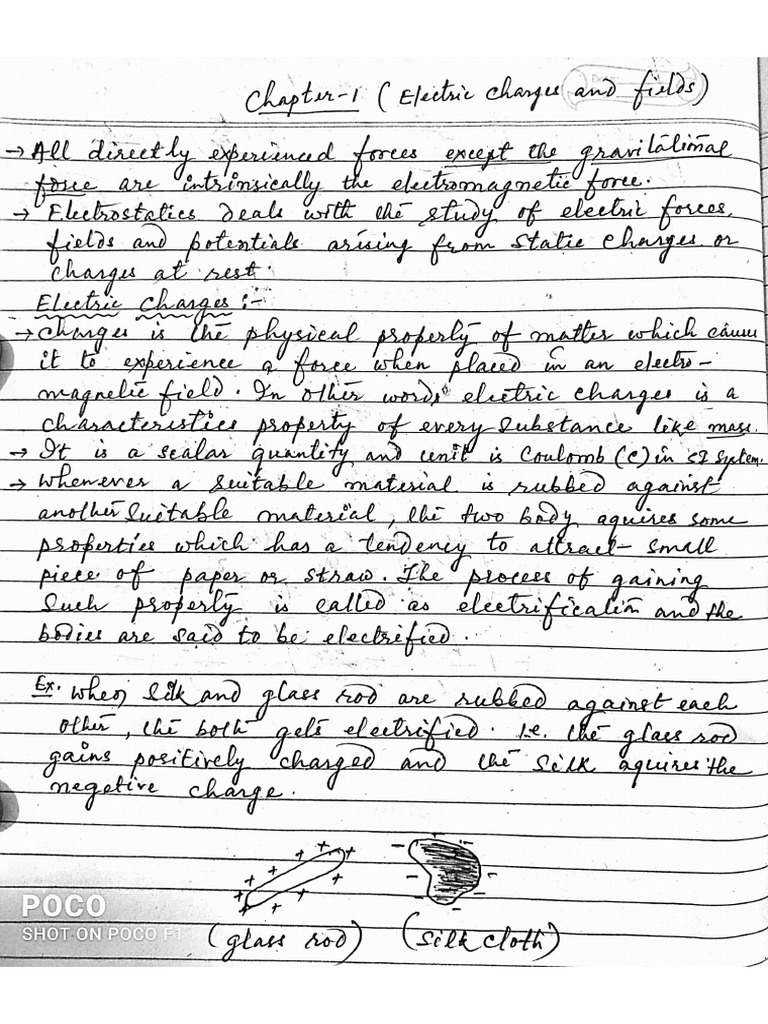 Chapter-1 (Electric charges and fields)
→ All directly experienced forces except the gravitational
force are intrinsically the electromagnetic force.
→ Electrostatics deals with the study of electric forces,
fields and potentials arising from static charges or
charges at rest.
Electric Charges :-
→ Charges is the physical property of matter which causes
it to experience a force when placed in an electro-
magnetic field. In other words electric charges is a
characteristics property of every substance like mass.
→ It is a scalar quantity and unit is Coulomb (C) in SI System.
→ Whenever a suitable material is rubbed against
another suitable material, the two body aquires some
properties which has a tendency to attract small
piece of paper or straw. The process of gaining
such property is called as electrification and the
bodies are said to be electrified.
Ex. When silk and glass rod are rubbed against each
other, the both gets electrified. i.e. the glass rod
gains positively charged and the silk aquires the
negetive charge.
+ + + + + + + + + +
- - - - - - -
(glass rod) (silk cloth)
POCO
SHOT ON POCO F1